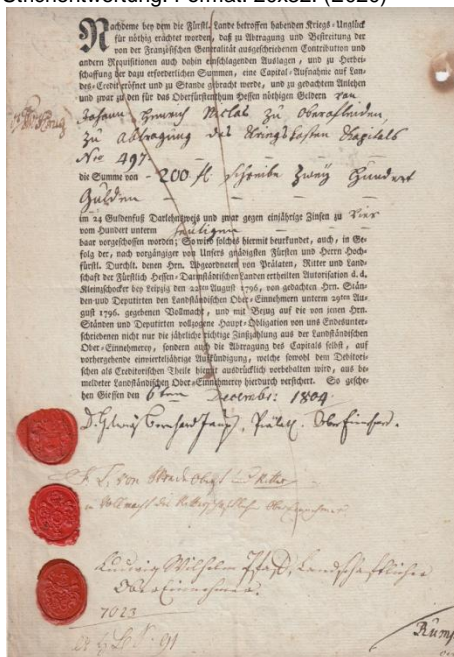 Strichentwertung. Format: 20x32. (2020)
Nachdeme bey dem die Fürstl. Lande betroffen habenden Kriegs-Unglück
für nöthig erachtet worden, daß zu Abtragung und Bestreitung der
von der Französischen Generalität ausgeschriebenen Contribution und
andern Requisitionen auch dahin einschlagenden Auslagen, und zu Herbei-
schaffung der dazu erforderlichen Summen, eine Capital-Aufnahme auf Lan-
des-Credit eröfnet und zu Stande gebracht werde, und zu gedachtem Anlehen
und zwar zu den für das Oberfürstenthum Hessen nöthigen Geldern von
Johann Henrich Niclas zu
zu Abtragung des Kriegskosten Capitals
Nro 497
die Summe von - 200 fl. schreibe Zwey Hundert
Gulden
im 24 Guldenfuß Darlehnsweis und zwar gegen einjährige Zinsen zu Vier
vom Hundert unterm heutigen
baar vorgeschossen worden; So wird solches hiermit beurkundet, auch, in Ge-
folg der, nach vorgängiger von Unsers gnädigsten Fürsten und Herrn Hoch-
fürstl. Durchlt. denen Hrn. Abgeordneten von Prälaten, Ritter und Land-
schaft der Fürstlich Hessen-Darmstädtischen Landen ertheilten Autorisation d. d.
Kleinzschocker bey Leipzig den 22ten August 1796, von gedachten Hrn. Stän-
den und Deputirten den Landständischen Ober-Einnehmern unterm 29ten Au-
gust 1796. gegebenen Vollmacht, und mit Bezug auf die von jenen Hrn.
Ständen und Deputirten vollzogene Haupt-Obligation von uns Endesunter-
schriebenen nicht nur die jährliche richtige Zinszahlung aus der Landständischen
Ober-Einnehmerey, sondern auch die Abtragung des Capitals selbst, auf
vorhergehende einvierteljährige Aufkündigung, welche sowohl dem Debitori-
schen als Creditorischen Theile hiemit ausdrücklich vorbehalten wird, aus be-
meldeter Landständischen Ober-Einnehmerey hierdurch versichert. So gesche-
hen Giessen den 6ten Decembr: 1804
Prälat. Ober Einnehm.
von Oberst und Ritter
in Vollmacht die Ritterschaftl. Obereinnehmer
Ludwig Wilhelm Pfaff, Landschaftlicher
Ober Einnehmer.
7023
91
Rumpf